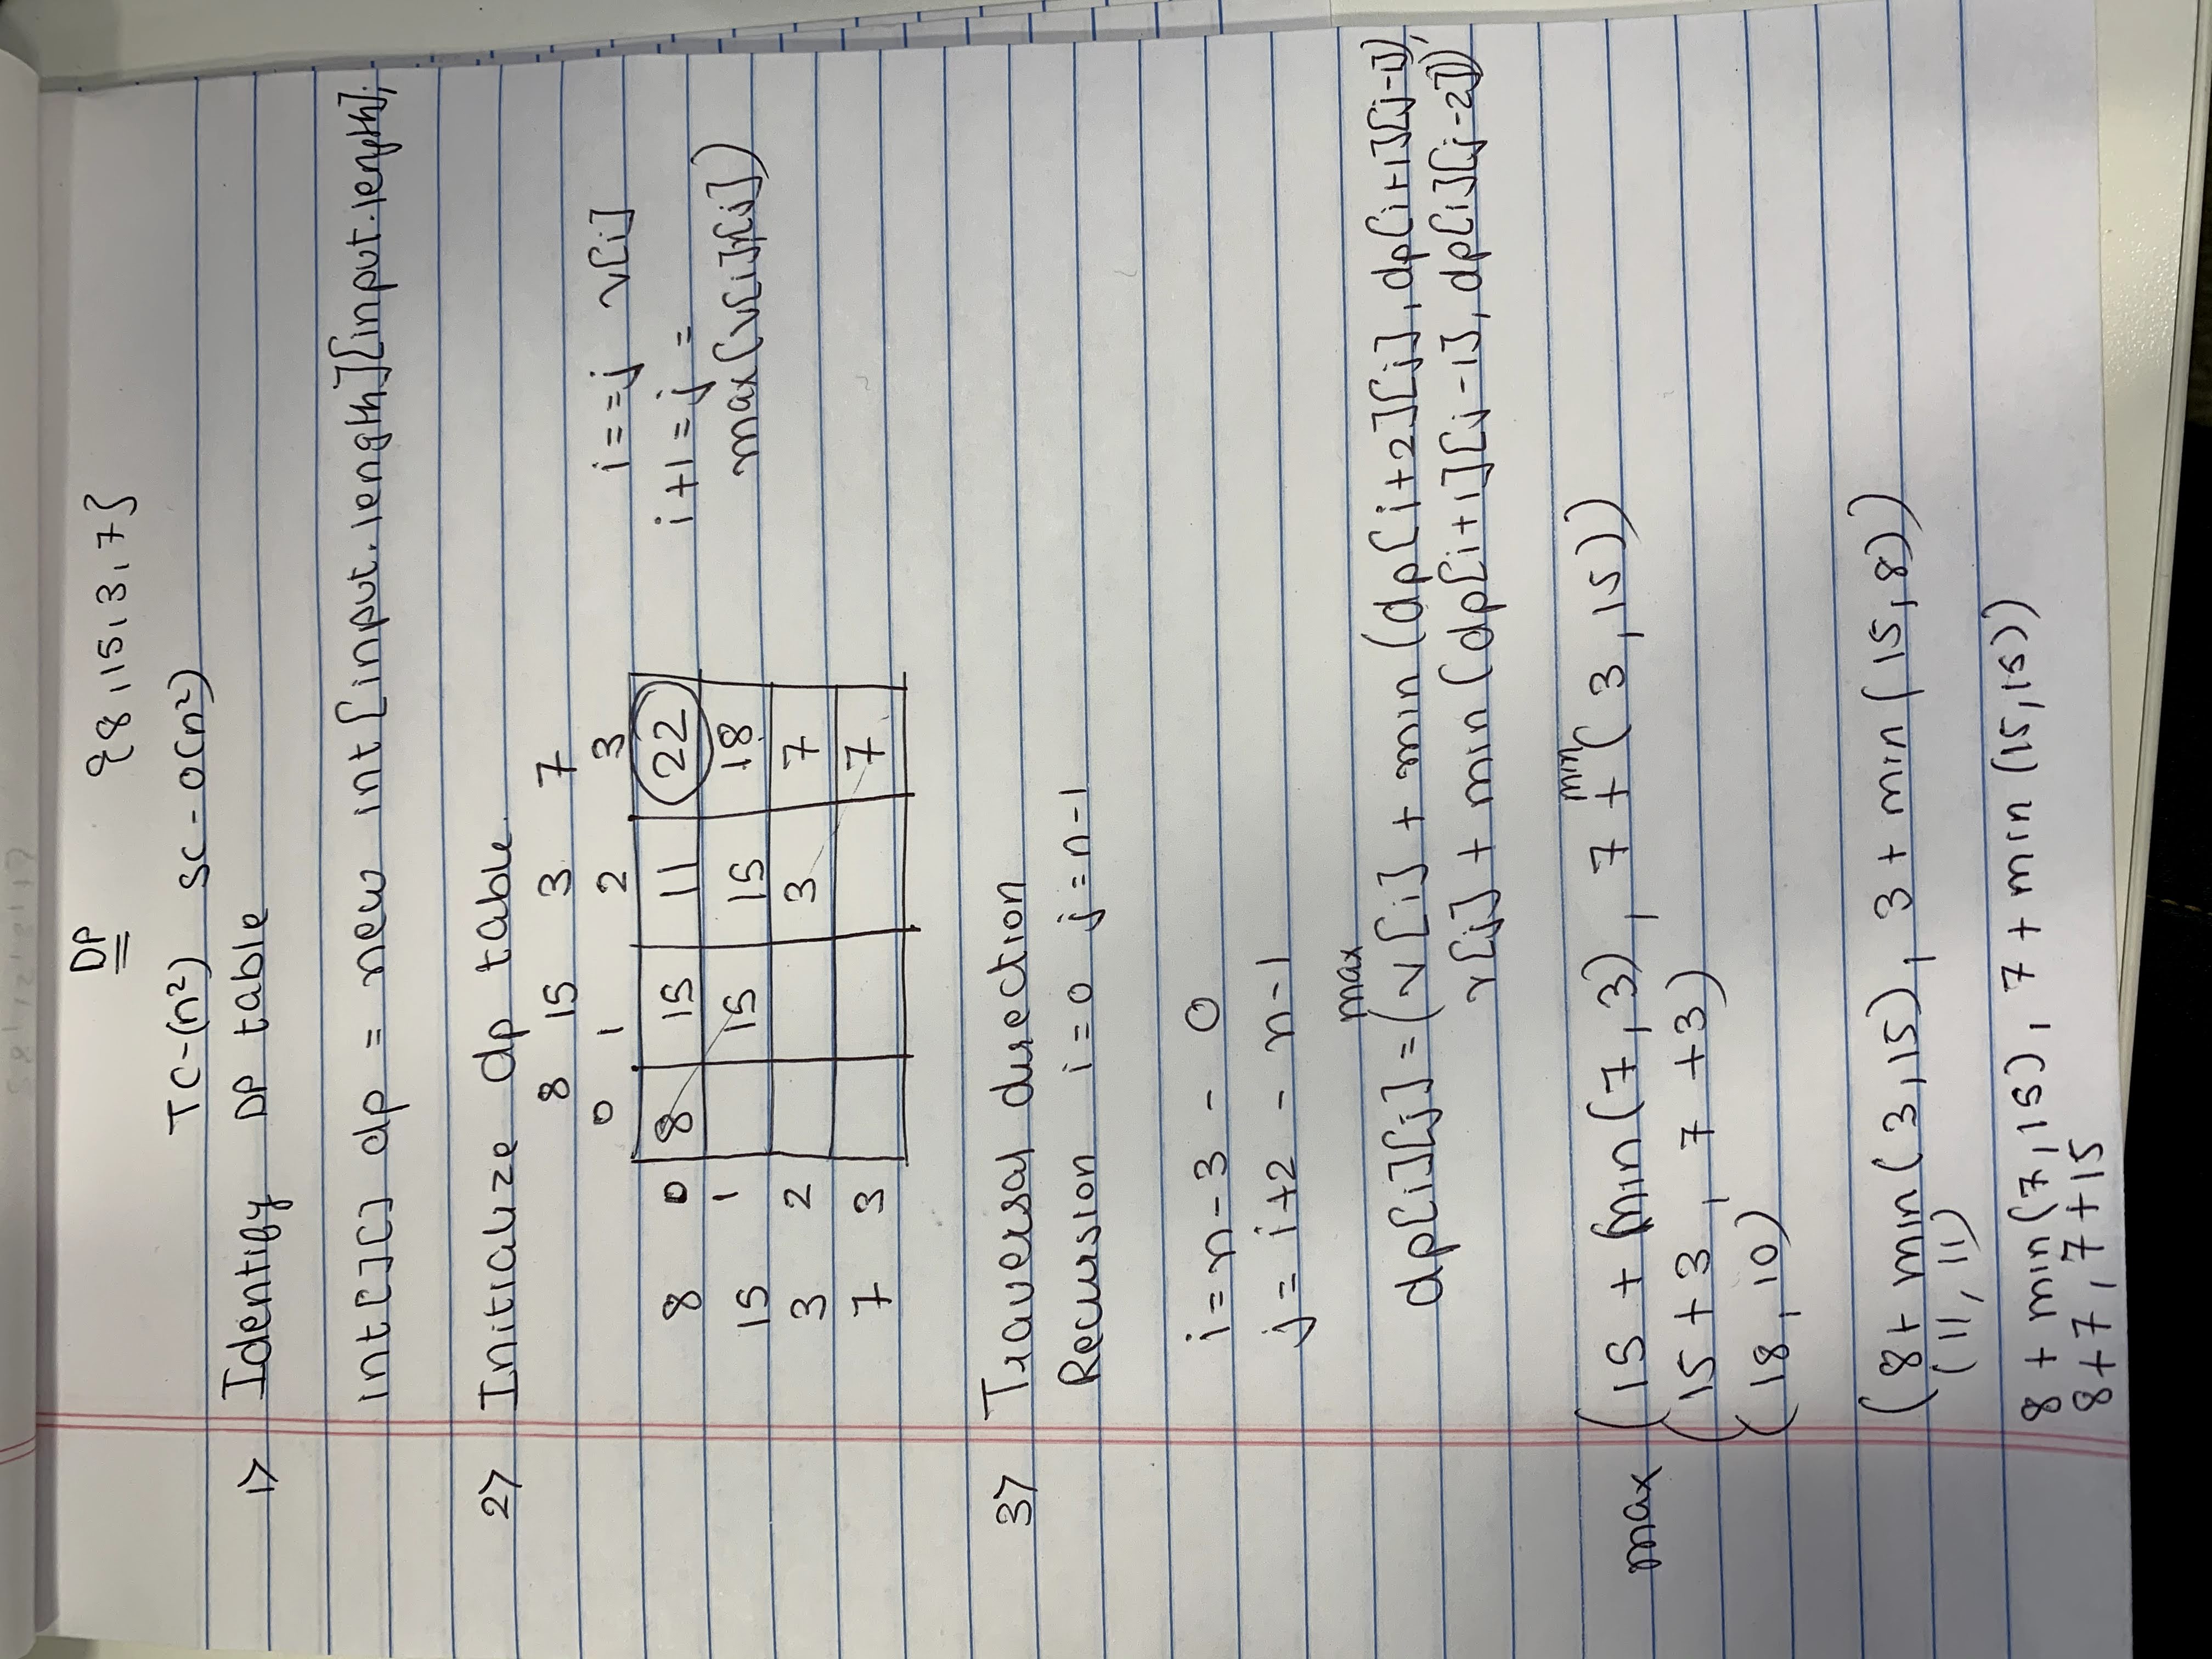 DP {8,15,3,7}
TC-(n²) SC-O(n²)
1> Identify DP table
int[][] dp = new int[input.length][input.length];
2> Initialize dp table.
8 15 3 7
0 1 2 3
i==j v[i]
8 0 8 15 11 22
i+1=j =
15 1 15 15 18
max(v[i],v[j])
3 2 3 7
7 3 7
3> Traversal direction
Recursion i=0 j=n-1
i=n-3 - 0
j= i+2 - n-1
max
dp[i][j]=(v[i] + min(dp[i+2][j], dp[i+1][j-1]),
v[j] + min(dp[i+1][j-1], dp[i][j-2]))
min
max (15 + min(7,3), 7 + (3,15))
(15+3, 7+3)
(18,10)
(8+ min(3,15), 3+min(15,8))
(11,11)
8 + min(7,15), 7+min(15,15))
8+7, 7+15